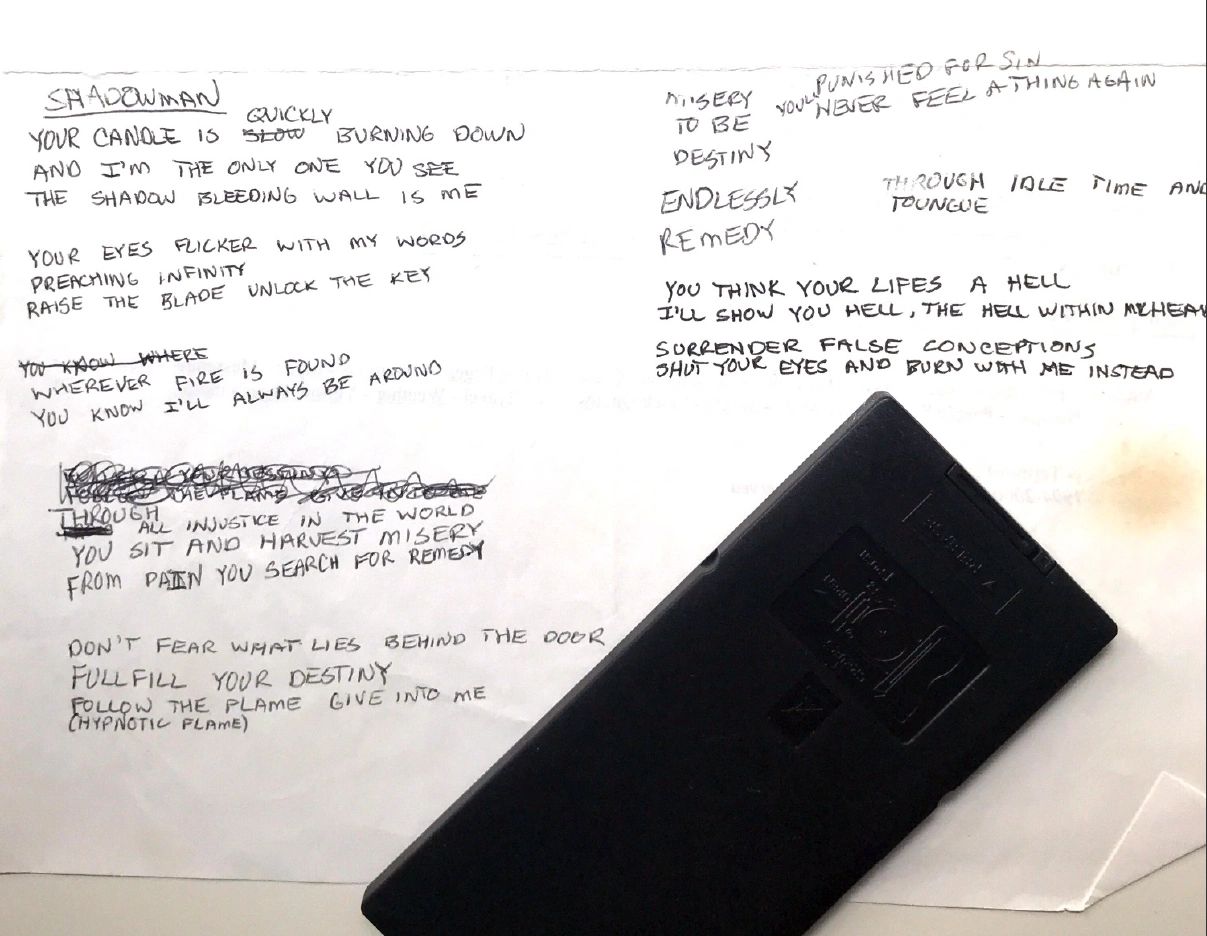 SHADOWMAN
QUICKLY
YOUR CANDLE IS SLOW BURNING DOWN
AND I'M THE ONLY ONE YOU SEE
THE SHADOW BLEEDING WALL IS ME
YOUR EYES FLICKER WITH MY WORDS
PREACHING INFINITY
RAISE THE BLADE UNLOCK THE KEY
YOU KNOW WHERE
WHEREVER FIRE IS FOUND
YOU KNOW I'LL ALWAYS BE AROUND
THE FLAME GIVE INTO
THROUGH
ALL INJUSTICE IN THE WORLD
YOU SIT AND HARVEST MISERY
FROM PAIN YOU SEARCH FOR REMEDY
DON'T FEAR WHAT LIES BEHIND THE DOOR
FULLFILL YOUR DESTINY
FOLLOW THE FLAME GIVE INTO ME
(HYPNOTIC FLAME)
PUNISHED FOR SIN
MISERY YOU'LL NEVER FEEL A THING AGAIN
TO BE
DESTINY
ENDLESSLY THROUGH IDLE TIME AND
TOUNGUE
REMEDY
YOU THINK YOUR LIFES A HELL
I'LL SHOW YOU HELL, THE HELL WITHIN MY HEA
SURRENDER FALSE CONCEPTIONS
SHUT YOUR EYES AND BURN WITH ME INSTEAD